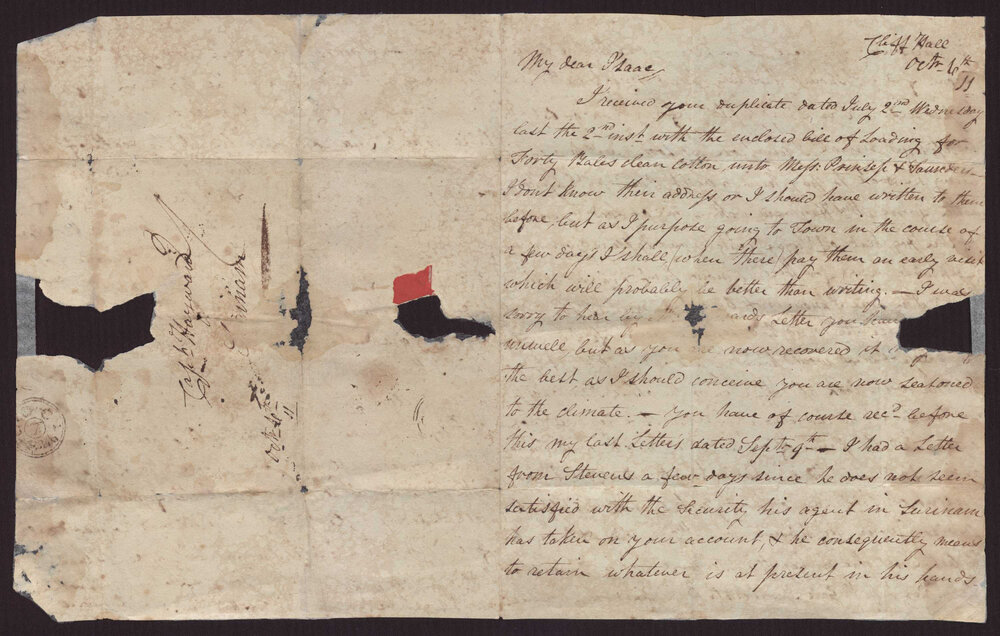 Cliff Hall
Octr 6th
11
My dear Isaac,
I received your duplicate dated July 2nd Wednesday
last the 2nd inst with the enclosed bill of Loading for
Forty Bales clean Cotton, unto Messr Prinsep & Saunders
I dont know their address or I should have written to them
before, but as I purpose going to Town in the course of
a few days I shall, (when there) pay them an early visit
which will probably be better than writing. — I was
sorry to hear by ands Letter you have
unwell, but as you are now recovered it is
the best as I should conceive you are now seasoned
to the climate. — you have of course recd before
this my last Letters dated Septr 9th — I had a Letter
from Stevens a few days since he does not seem
satisfied with the Security his agent in Surinam
has taken on your account, & he consequently means
to retain whatever is at present in his hands.
Captn Hayward
Surinam
Octr 6th
11